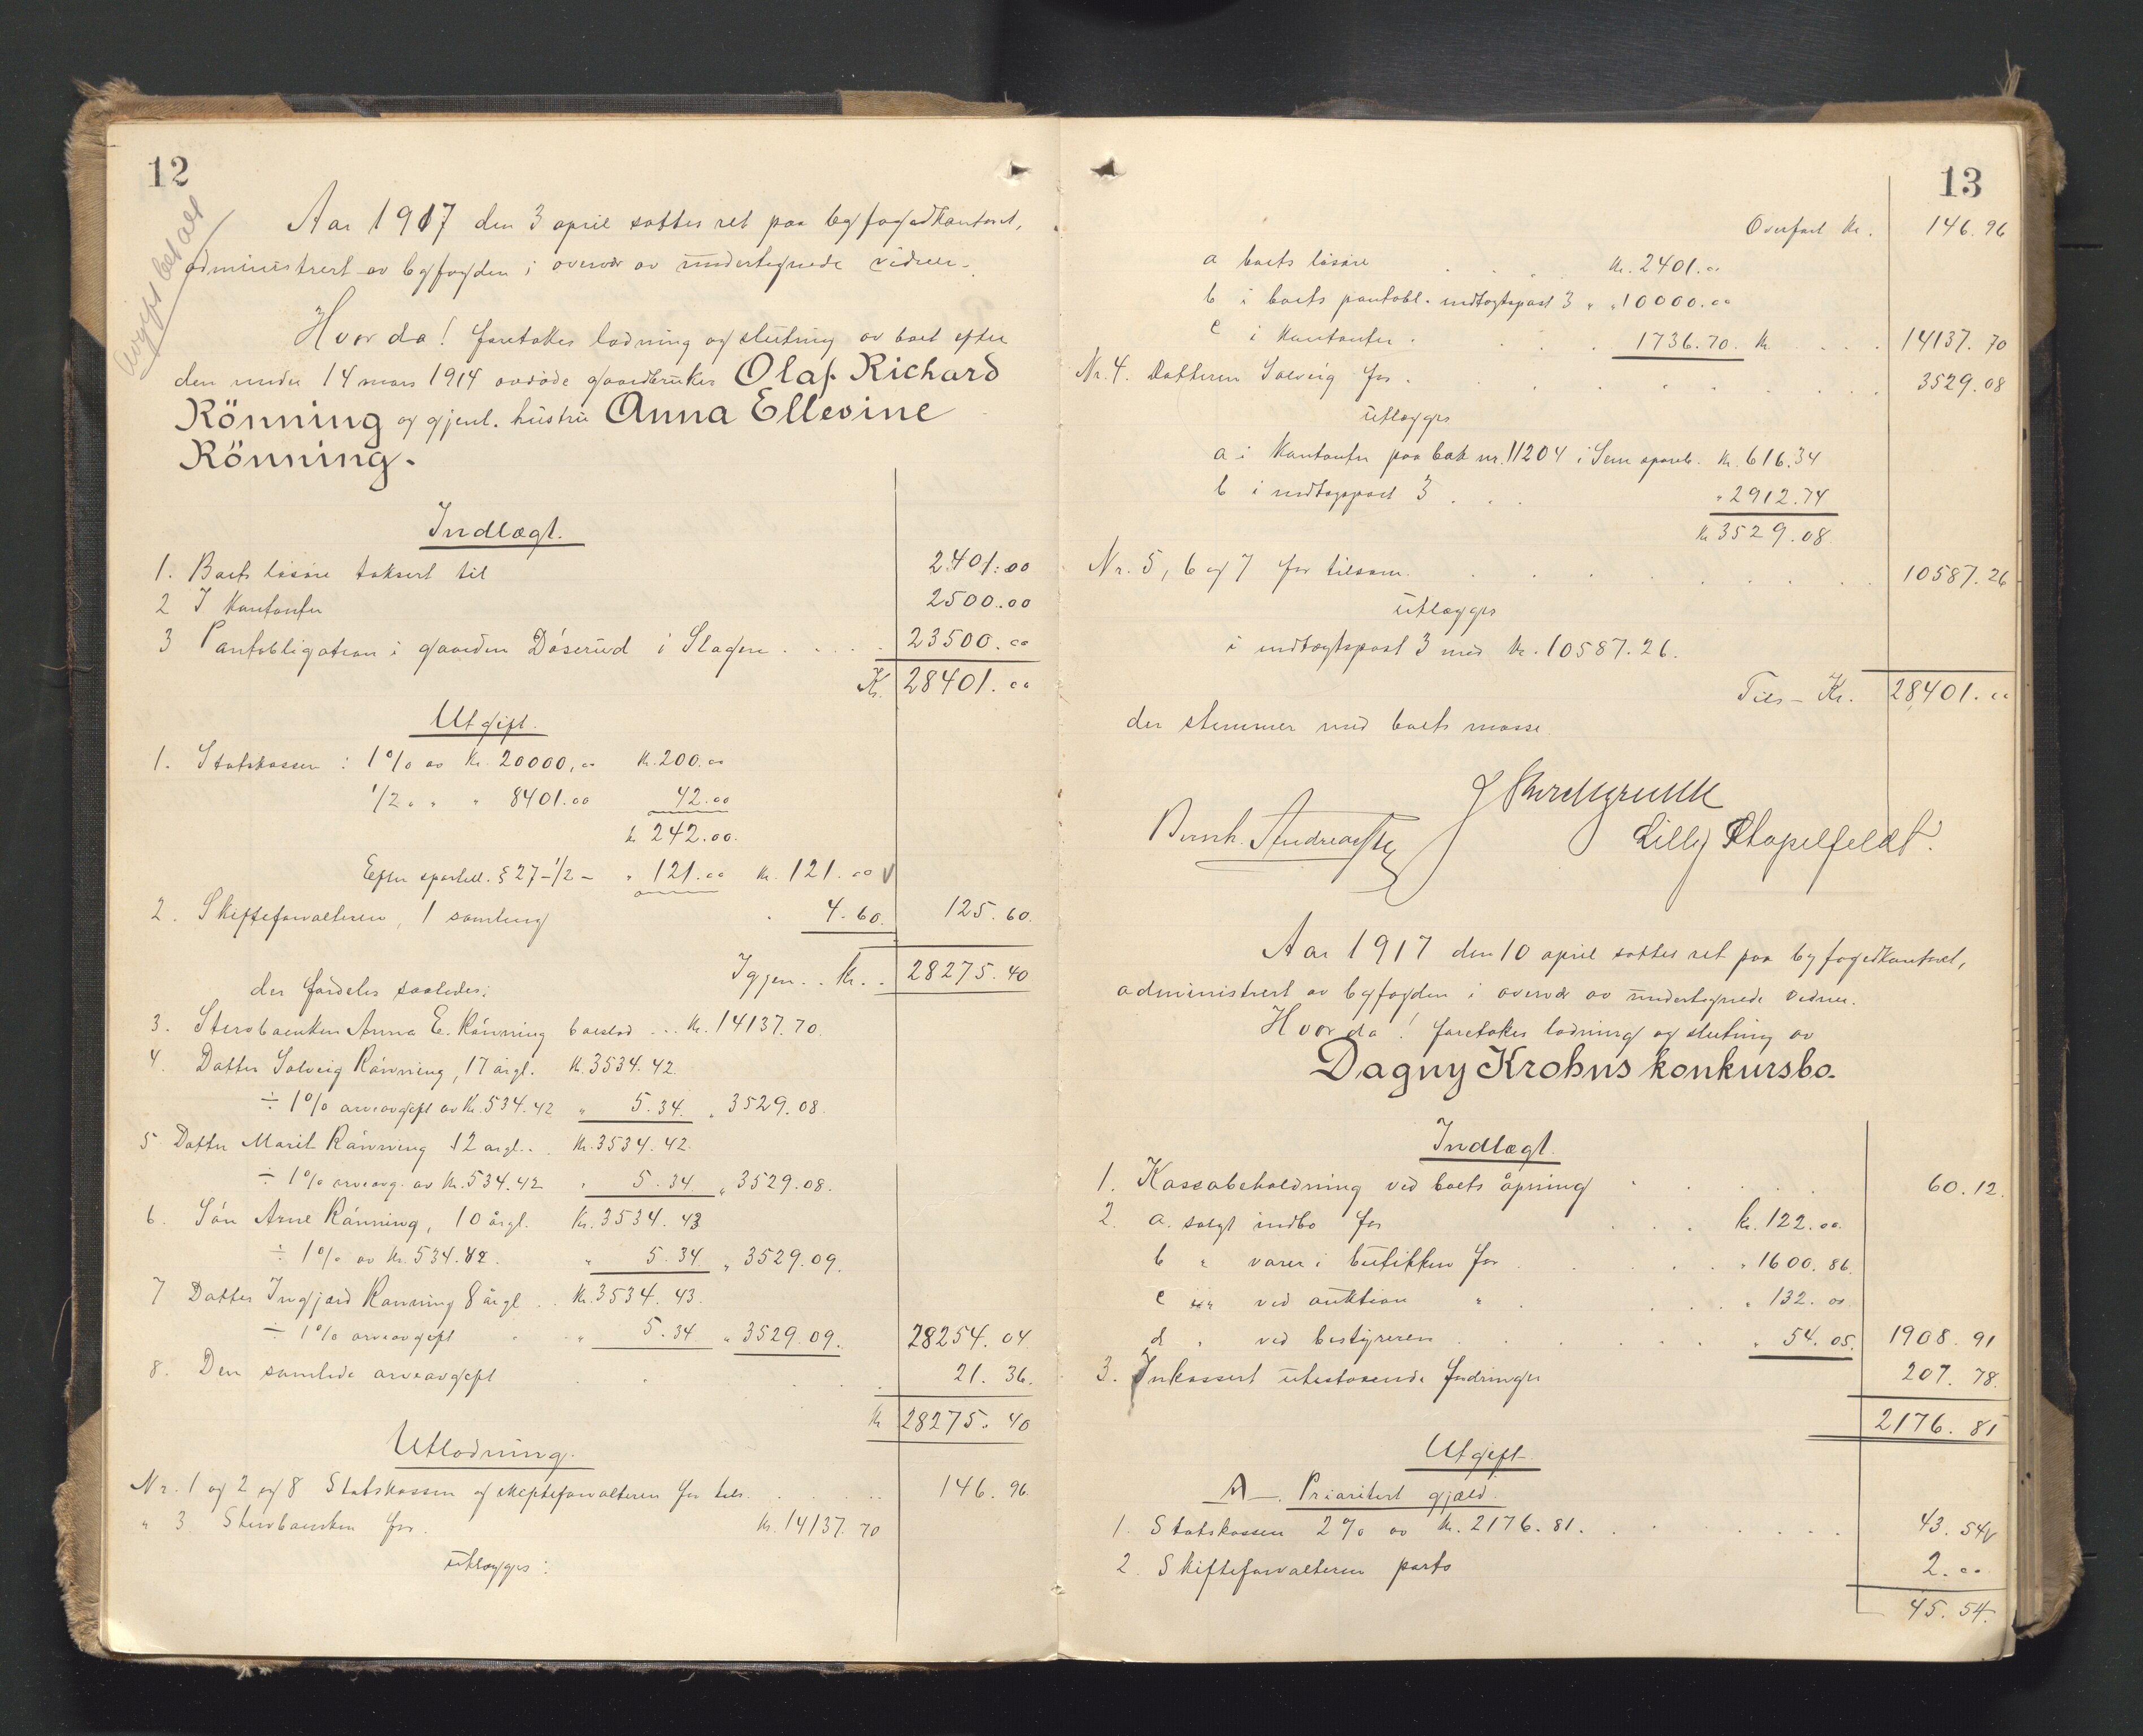 12
Avgift betalt
Aar 1917 den 3 april sattes ret paa byfogedkontoret,
administrert av byfogden i overvær av undertegnede vidner.
Hvorda! foretokes lodning og slutning av boet efter
den under 14 mars 1914 avdøde gaardbruker Olaf Richard
Rönning og gjenl. hustru Anna Ellevine
Rönning.
Indlægt.
1. Boets løsøre taksert til 2401.00
2 I Kontanter 2500.00
3 Pantobligation i gaarden Døserud i Slagen . . . . 23500.00
Kr. 28401.00
Utgift.
1. Statskassen : 1% av Kr. 20000,00 Kr. 200.00
1/2 " " " 8401.00 42.00
Kr 242.00.
Efter sportell. § 27 - 1/2 - " 121.00 Kr. 121.00
2. Skifteforvalteren, 1 samling " 4.60. 125.60.
Igjen . . Kr. . 28275.40
der fordeles saaledes:
3. Stervboenken Anna E. Rönning boeslod . . . Kr. 14137.70.
4. Datter Solveig Rönning, 17 årgl. Kr. 3534.42.
÷ 1% arveavgift av Kr. 534.42 " 5.34. " 3529.08.
5 Datter Marit Rönning 12 årgl. . . Kr. 3534.42.
÷ 1% arveavg. av Kr. 534.42 " 5.34 " 3529.08.
6. Sön Arne Rönning, 10 årgl. Kr. 3534.43
÷ 1% av Kr. 534.42. " 5.34 " 3529.09.
7 Datter Ingjærd Rönning 8 årgl . . Kr. 3534.43.
÷ 1% arveavgift " " 5.34 " 3529.09. 28254.04
8. Den samlede arveavgift 21.36.
Kr 28275.40
Utlodning.
Nr. 1 og 2 og 8 Statskassen og skifteforvalteren for tils. 146.96.
" 3 Stervboenken for. Kr. 14137.70
utlægges:
13
Overført Kr. 146.96
a boets løsøre . . . . Kr. 2401.00
b i boets pantobl. indtægtspost 3 " " 10000.00
c i kontanter . . . . 1736.70. Kr . . . 14137.70
Nr. 4. Datteren Solveig for . . . . 3529.08
utlægges
a i Kontanter paa bok nr. 11204 i Sem spareb. Kr. 616.34
b i indtægtspost 3 . . . " 2912.74
Kr 3529.08
Nr. 5, 6 og 7 for tilsam. . . . . 10587.26
utlægges
i indtægtspost 3 med Kr. 10587.26.
Tils - Kr. 28401.00
der stemmer med boets masse.
Lilly Stapelfeldt.
Aar 1917 den 10 april sattes ret paa byfogedkontoret,
administrert av byfogden i overvær av undertegnede vidner.
Hvorda! foretokes lodning og slutning av
Dagny Krohns konkursbo.
Indlægt.
1. Kassabeholdning ved boets åpning . . . . 60.12.
2. a. solgt indbo for . . . Kr. 122.00.
b " varer i butikken for . . . . " 1600.86.
c " ved auktion " . . . . " 132.00
d " ved bestyreren . . . . " 54.05. 1908.91
3. Inkassert utestaaende fordringer 207.78.
2176.81
Utgift.
A - Prioritert gjæld.
1. Statskassen 2% av Kr. 2176.81. . . . . 43.54
2. Skifteforvalteren porto 2.00
45.54.